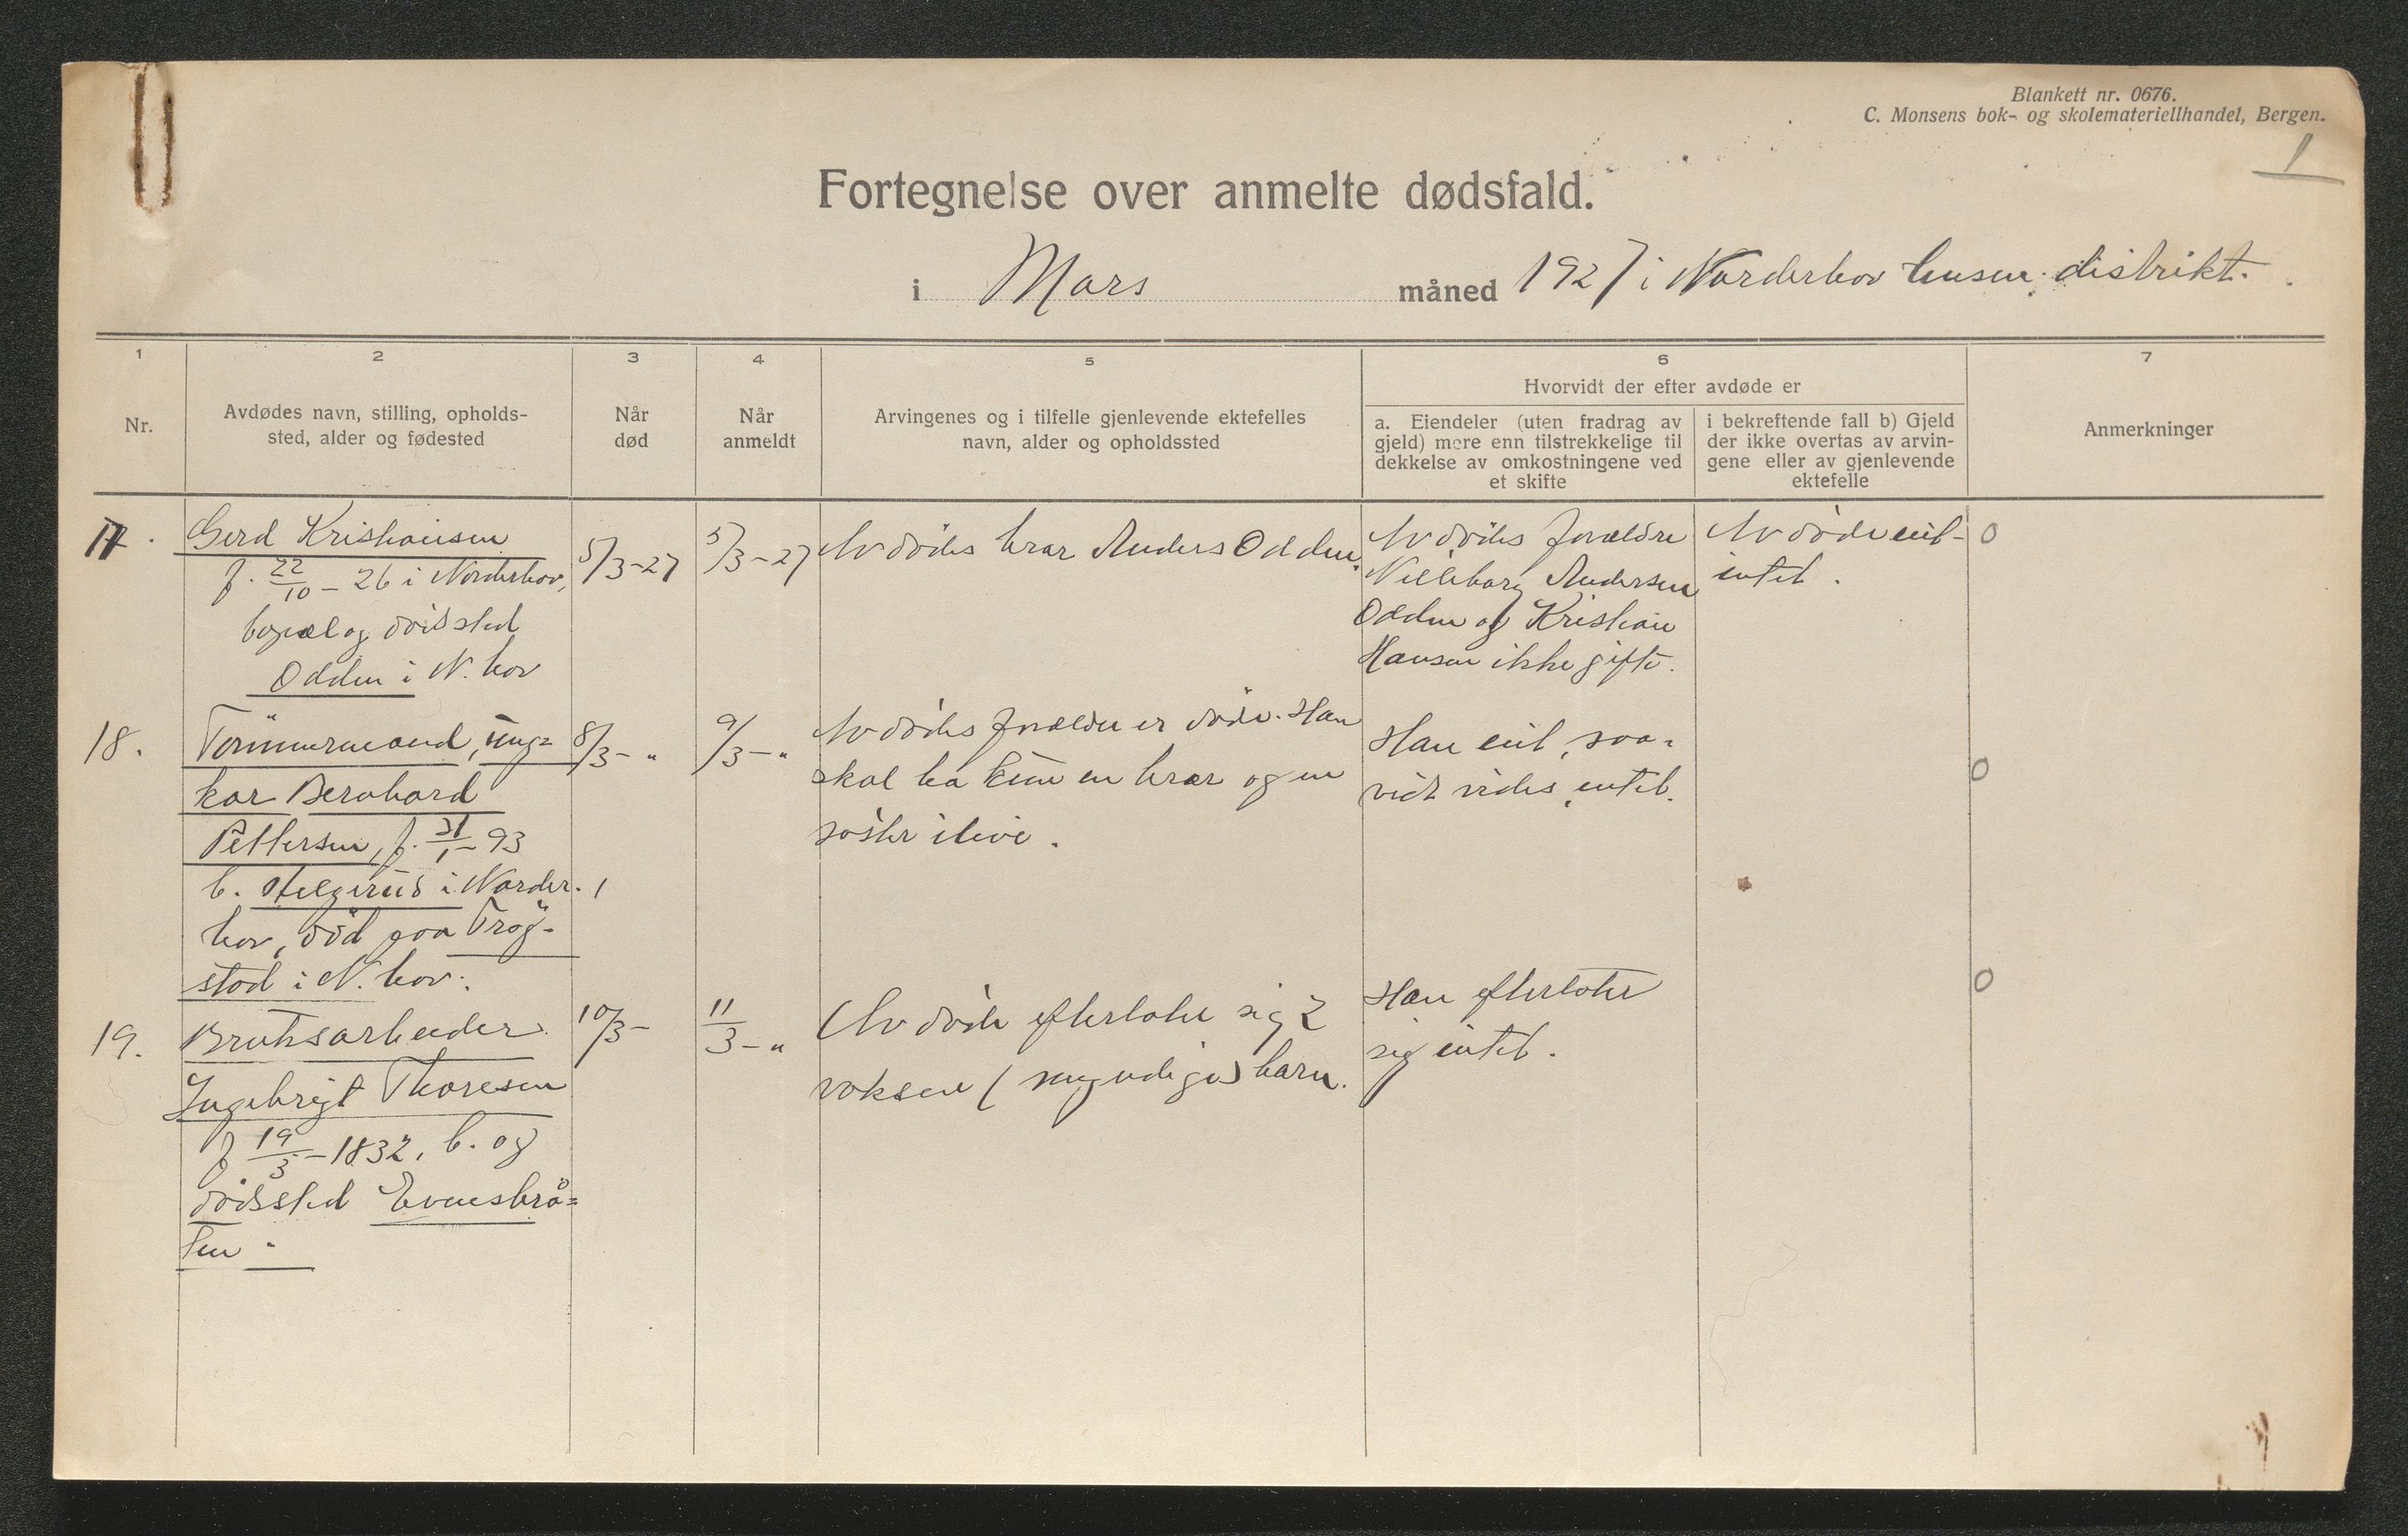 Blankett nr. 0676.
C. Monsens bok- og skolemateriellhandel, Bergen.
1
Fortegnelse over anmelte dødsfald.
i Mars måned 1927 i Norderhov lensm. distrikt.
1
2
3
4
5
6
7
Nr.
Avdødes navn, stilling, opholds-
sted, alder og fødested
Når
død
Når
anmeldt
Arvingenes og i tilfelle gjenlevende ektefelles
navn, alder og opholdssted
Hvorvidt der efter avdøde er
a. Eiendeler (uten fradrag av
gjeld) mere enn tilstrekkelige til
dekkelse av omkostningene ved
et skifte
i bekreftende fall b) Gjeld
der ikke overtas av arvin-
gene eller av gjenlevende
ektefelle
Anmerkninger
17.
Gerd Kristiansen
f. 22/10 - 26 i Norderhov,
bopæl og dödssted
Odden i N. hov
5/3-27
5/3-27
Avdödes bror Anders Odden.
Avdödes forældre
Andersen
Odden og Kristian
Hansen ikke gifte.
Avdöde eiet
intet.
0
18.
Tömmermand, ung=
kar Bernhard
Pettersen, f. 31/1 - 93
b. Helgerud i Norder-
hov, död paa Trög-
stad i N. hov.
8/3 - "
9/3 - "
Avdödes forældre er döde. Han
skal ha kun en bror og en
söster i live.
Han eiet, saa-
vidt vides, intet.
0
19.
Bruksarbeider
Ingebrigt Thoresen
f 19/3 - 1832, b. og
dödssted Evensbrå=
ten.
10/3 -
11/3 - "
Avdöde efterlater sig 2
voksene (myndige) barn.
Han efterlater
sig intet.
0